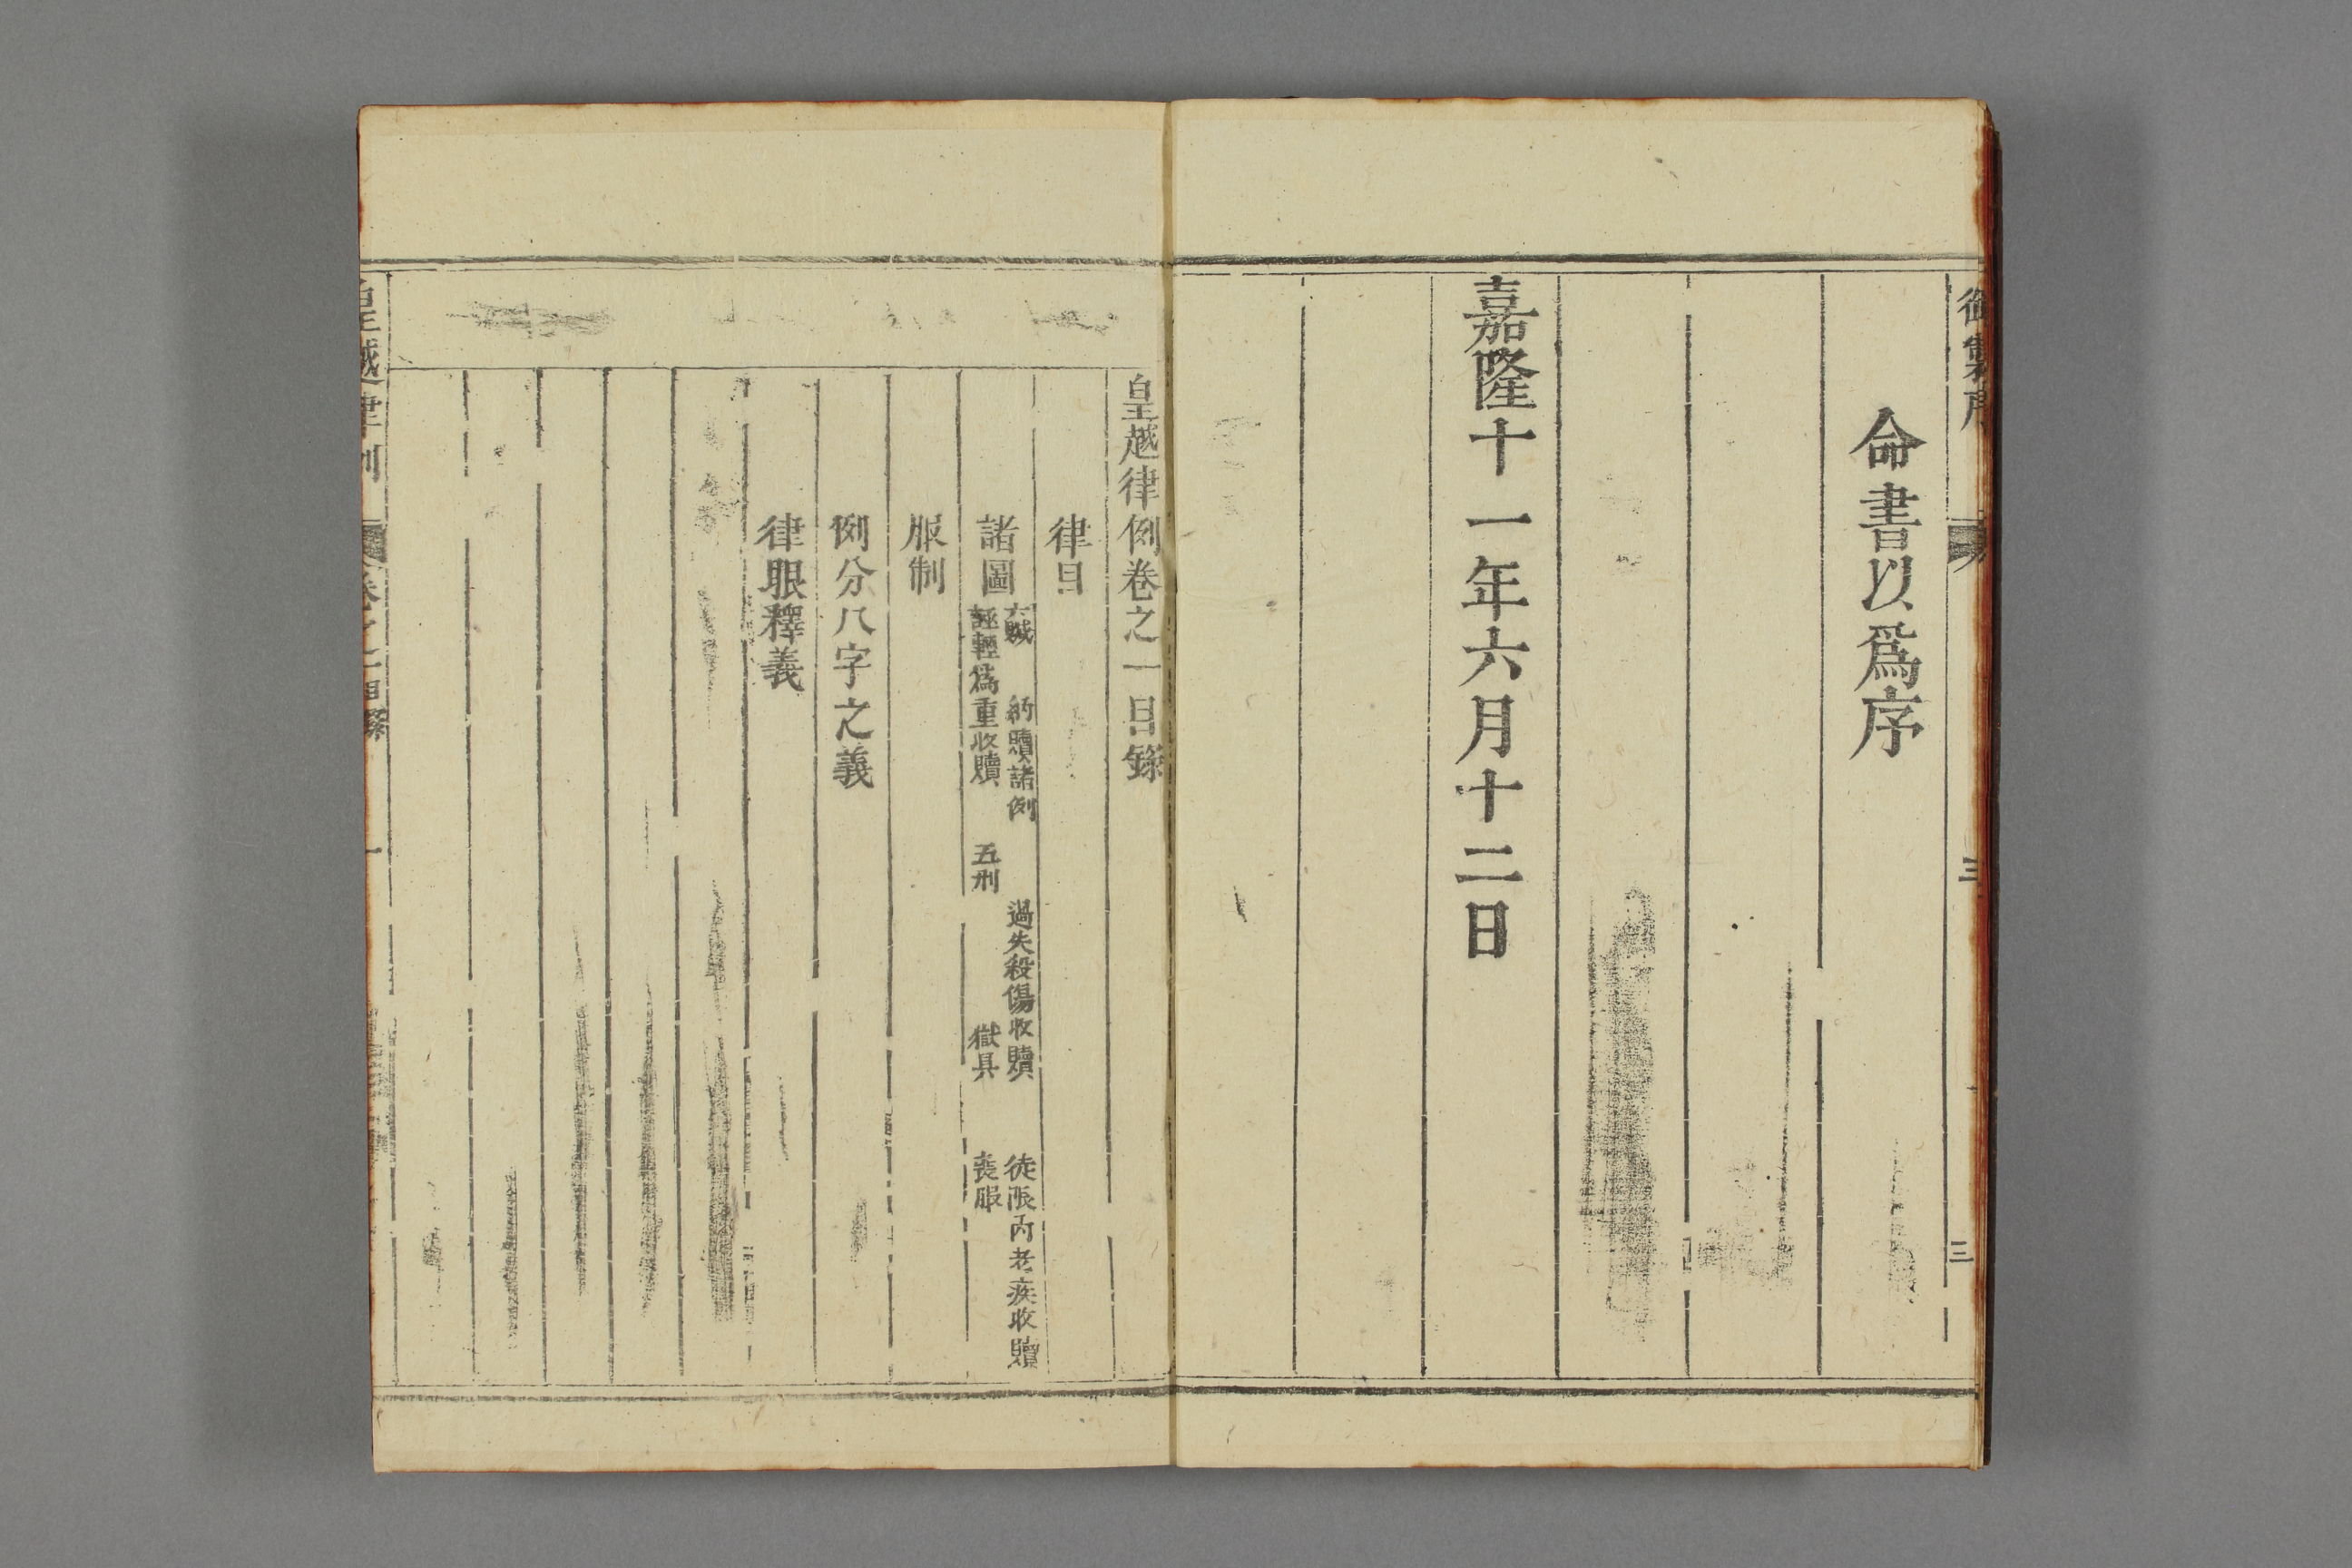 御製序
三
三
命書以爲序
嘉隆十一年六月十二日
皇越律例卷之一目錄
律目
諸圖
六贓 納贖諸例 過失殺傷收贖 徒限內老疾收贖
誣輕爲重收贖 五刑 獄具 喪服
服制
例分八字之義
律眼釋義
皇越律例 卷之一目錄 一